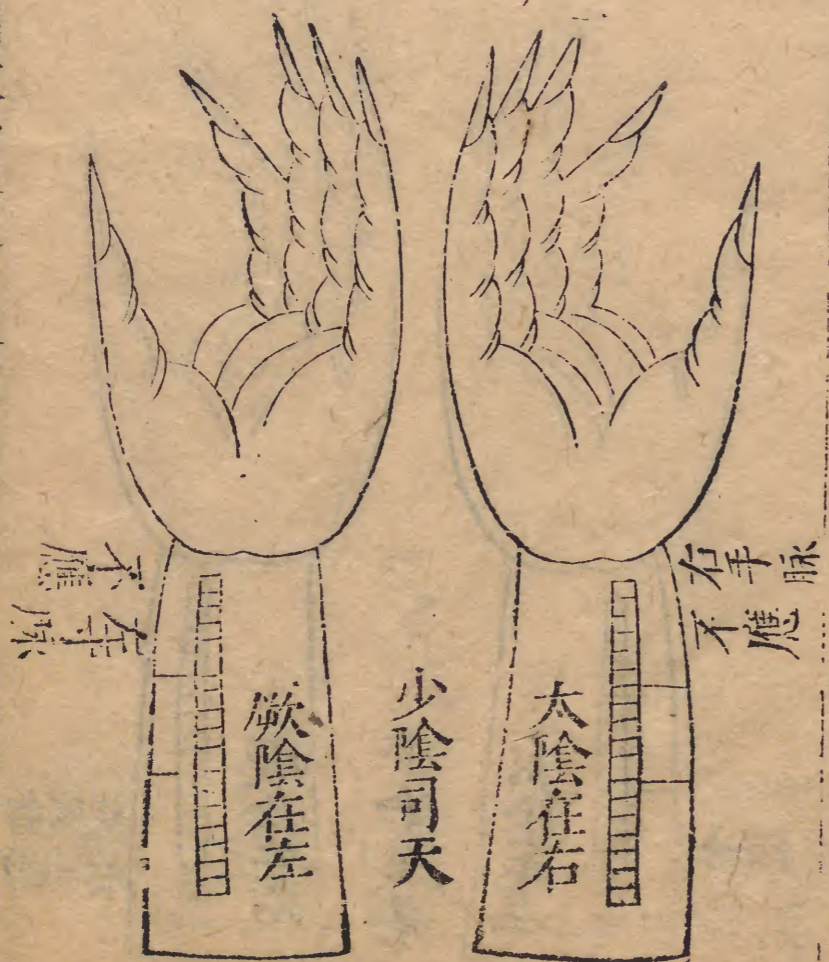 右手脉
不應
太陰在右
少陰司天
厥陰在左
左手脉
不應